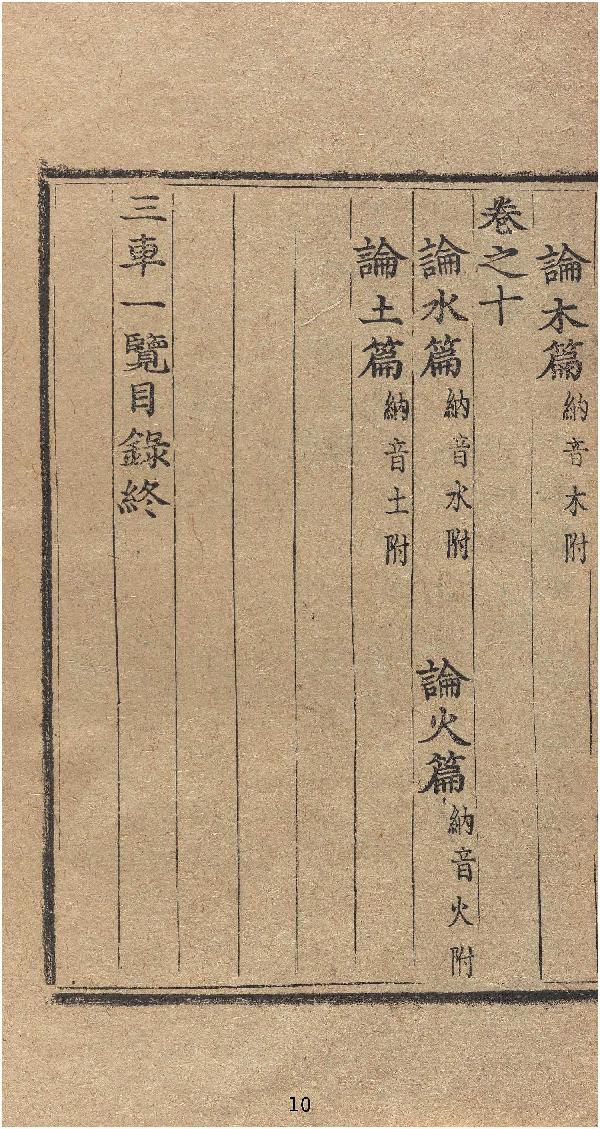 論木篇納音木附
卷之十
論水篇納音水附 論火篇納音火附
論土篇納音土附
三車一覽目錄終
10